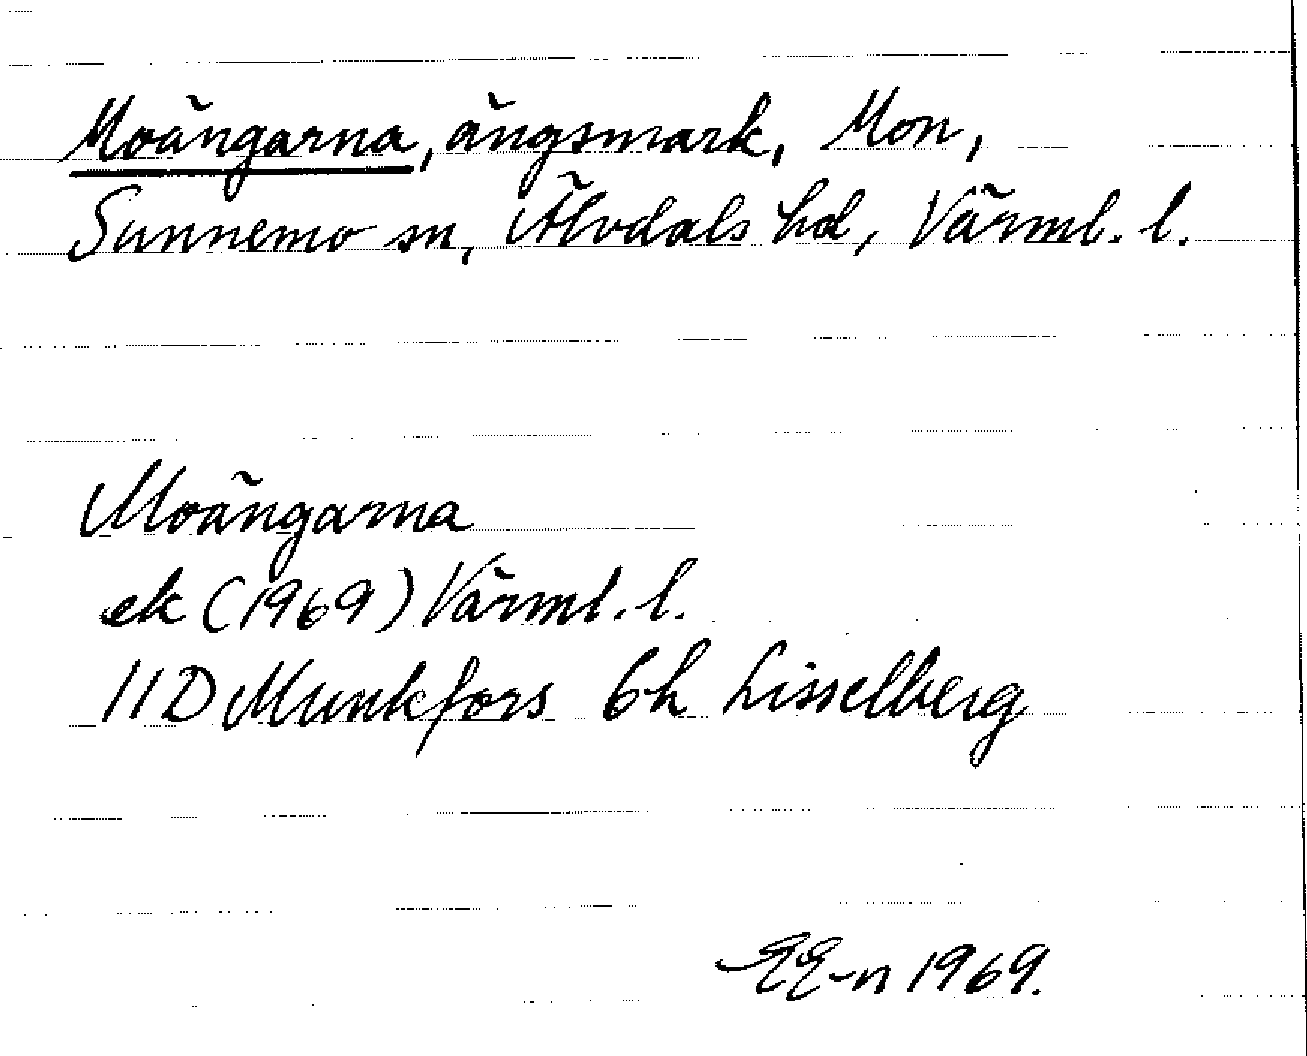 Moängarna, ängsmark, Mon,
Sunnemo sn, Älvdals hd, Värml. l.
Moängarna
ek (1969) Värml. l.
11D Munkfors 6h Lisselberg
EE-n 1969.